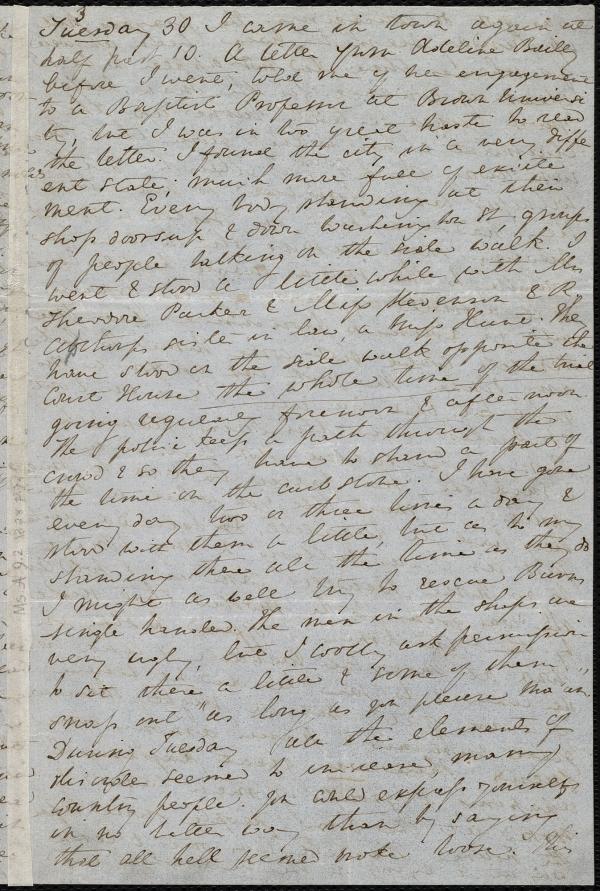 3
Tuesday 30 I came in town again at
half past 10. A letter from Adeline Bailey
before I went, told me of her engagement
to a Baptist Professor at Brown Universi
ty, but I was in too great haste to read
the letter. I found the city in a very differ
ent state; much more full of excite
ment. Every body standing at their
shop doors up & down Washington St, groups
of people talking on the side walk. I
went & stood a little while with Mrs
Theodore Parker & Miss Stevenson & R.
Apthorp's sister in law, a Miss Hunt. They
have stood on the side walk opposite the
Court House the whole time of the trial
going regularly forenoon & afternoon
The police keep a path through the
crowd & so they have to stand a part of
the time on the curb stone. I have gone
every day two or three times a day &
stood with them a little, but as to my
standing there all the time as they do
I might as well try to rescue Burns
single handed. The men in the shops are
very ugly, but I coolly ask permission
to sit there a little & some of them
snap out "as long as you please ma'am."
During Tuesday all the elements of
discord seemed to increase, many
country people. You could express yourself
in no better way than by saying
that all hell seemed broke loose. This
Ms. A. 9.2